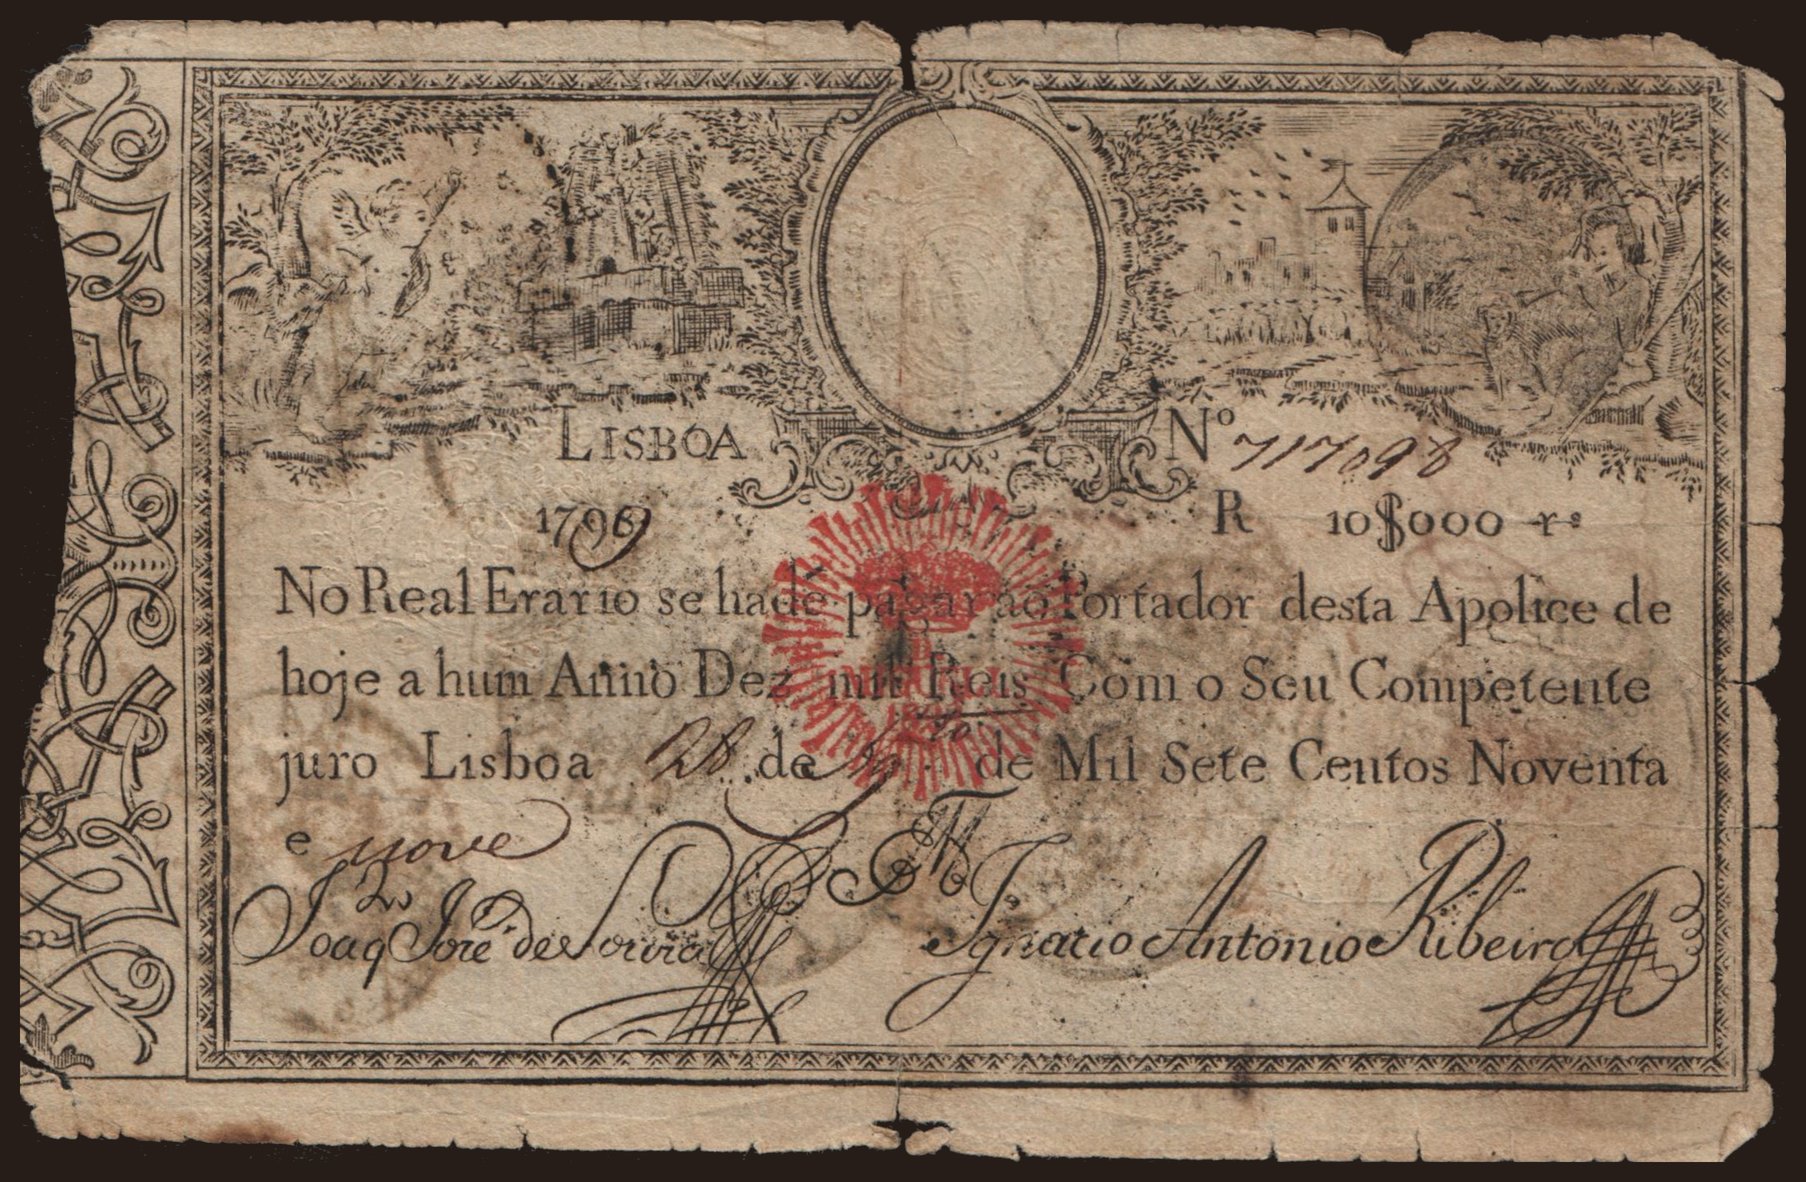 LISBOA Nº 717098
1799 R 10$000 rs
No Real Erario se hade pagar ao Portador desta Apolice de
hoje a hum Anno Dez mil Reis Com o Seu Competente
juro Lisboa 28 de de Mil Sete Centos Noventa
e nove
Joaq Jose de Souza Ignacio Antonio Ribeiro